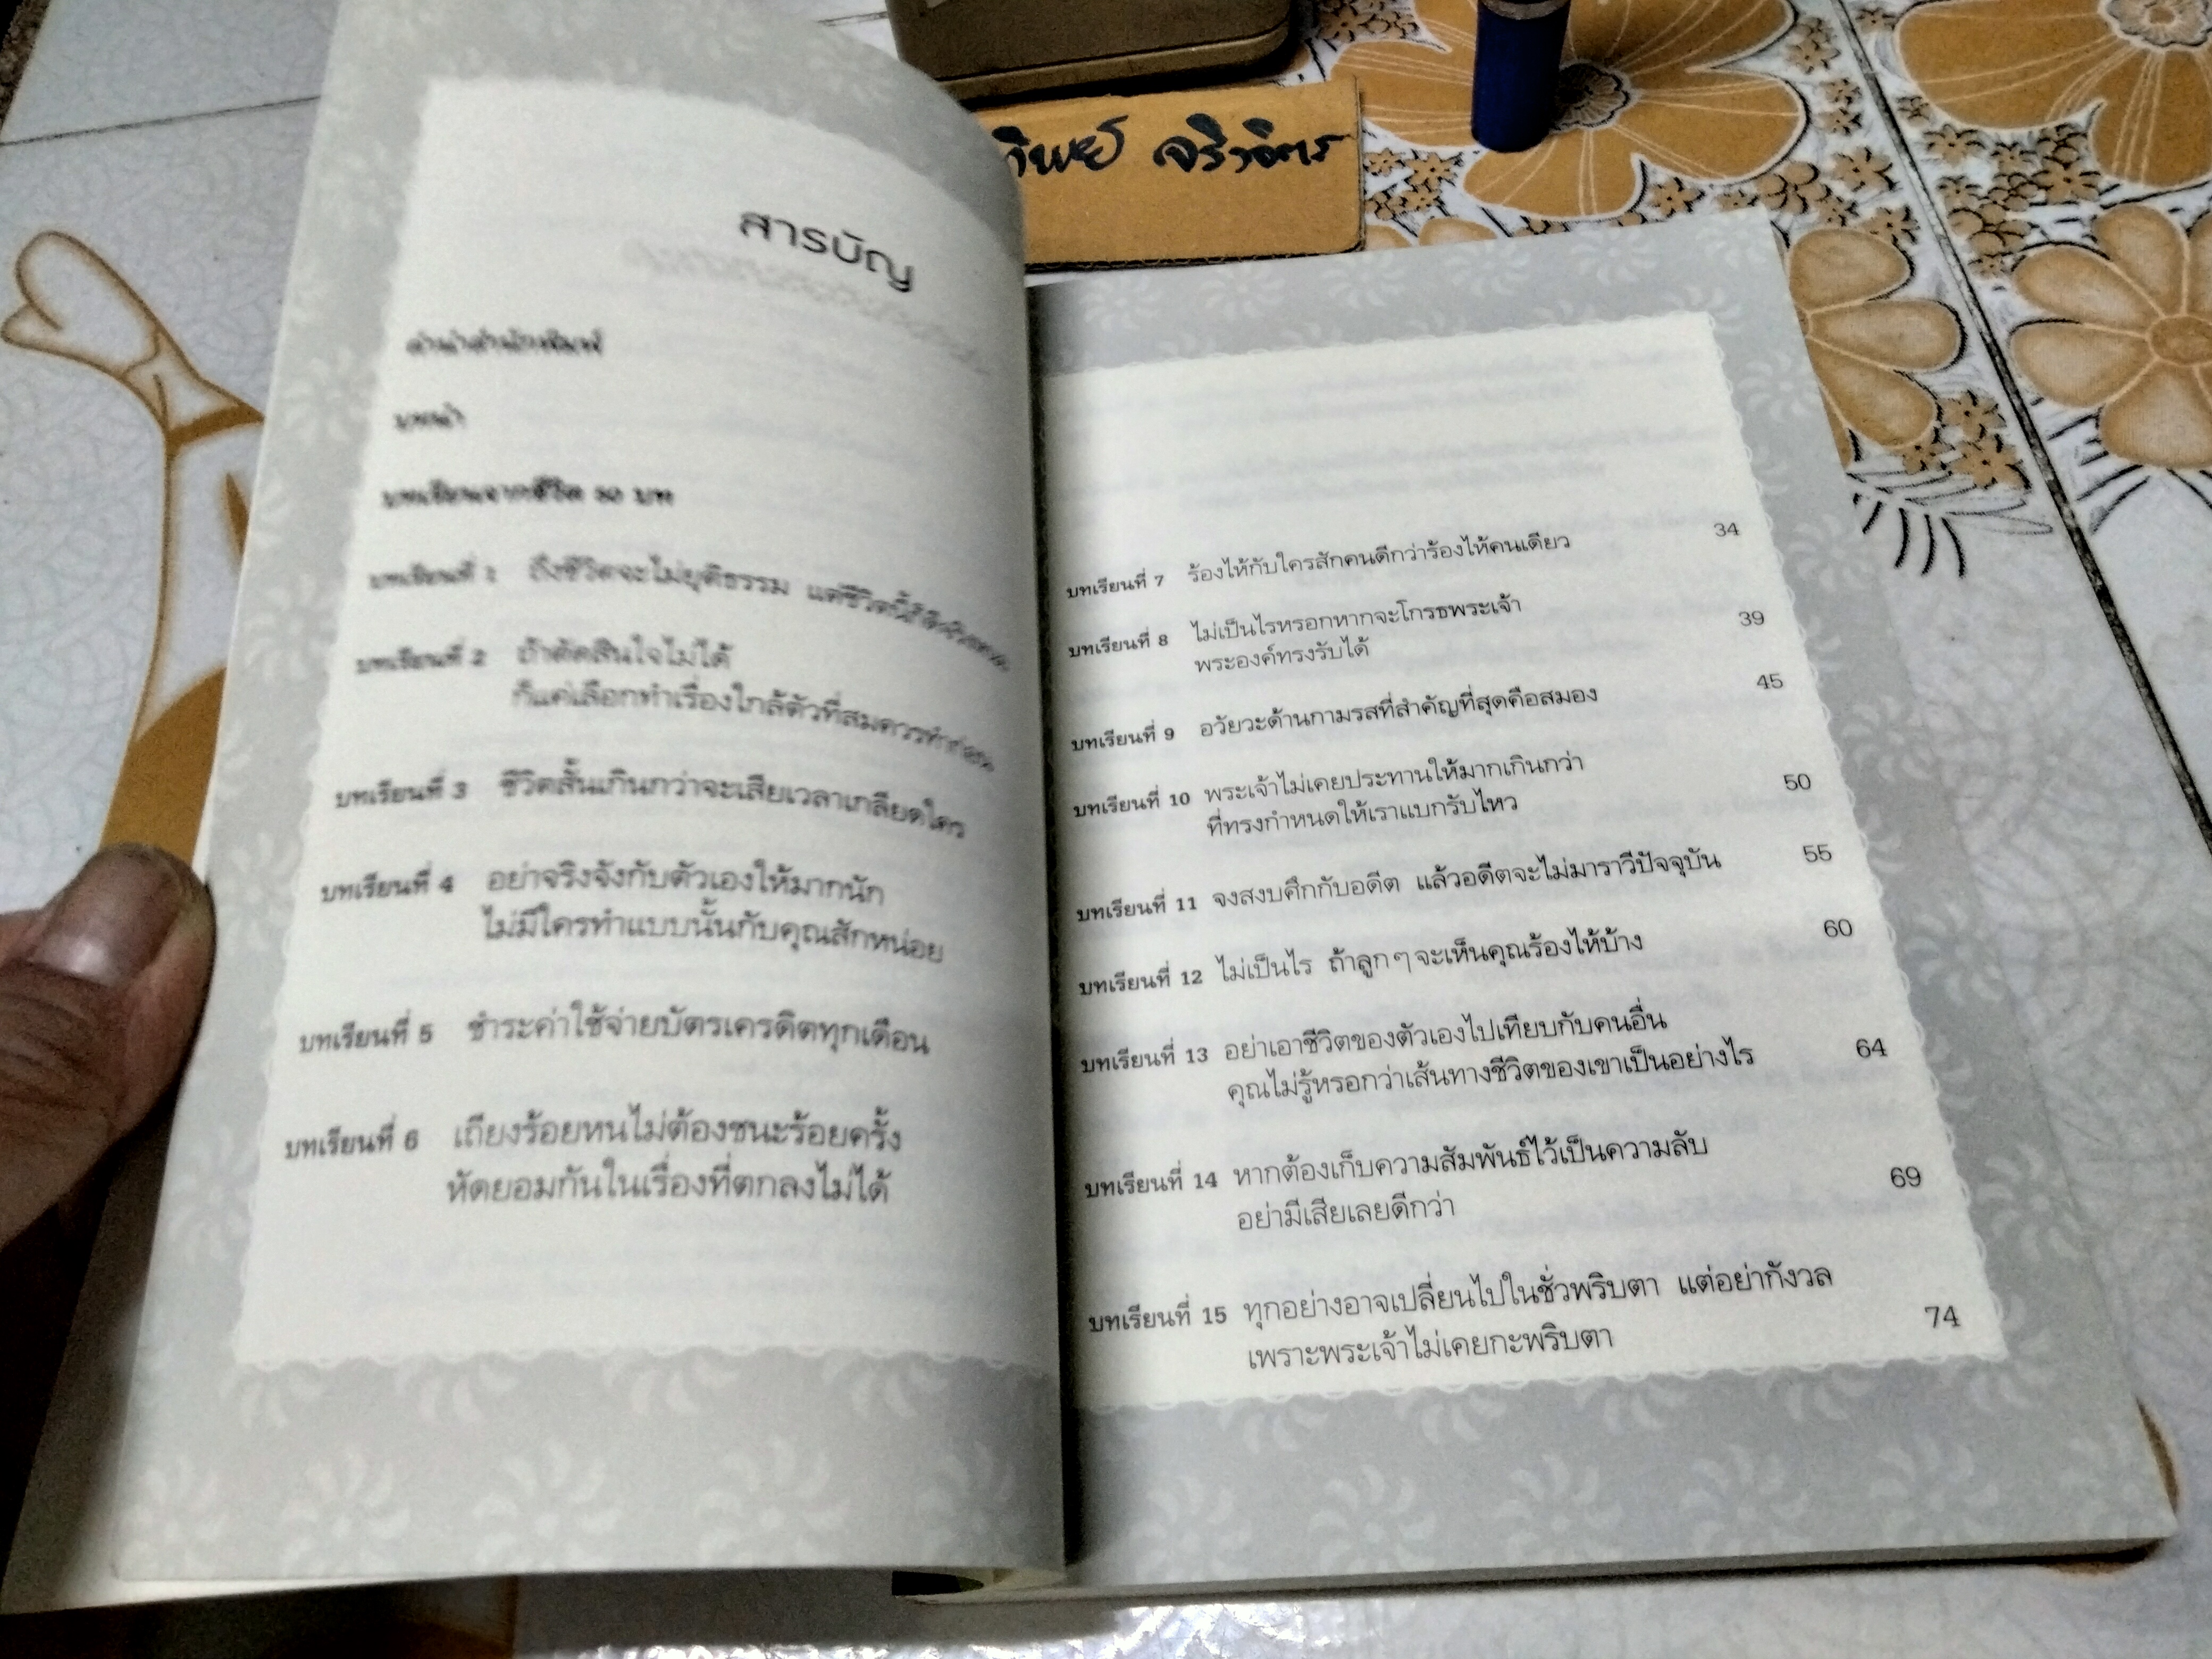 ทิพย์ จริวจิตร
สารบัญ
คำนำสำนักพิมพ์
บทนำ
บทเรียนจากชีวิต 50 บท
บทเรียนที่ 1 ถึงชีวิตจะไม่ยุติธรรม แต่ชีวิตนี้ก็ดี
บทเรียนที่ 2 ถ้าตัดสินใจไม่ได้
ก็แค่เลือกทำเรื่องใกล้ตัวที่สมควรทำก่อน
บทเรียนที่ 3 ชีวิตสั้นเกินกว่าจะเสียเวลาเกลียดใคร
บทเรียนที่ 4 อย่าจริงจังกับตัวเองให้มากนัก
ไม่มีใครทำแบบนั้นกับคุณสักหน่อย
บทเรียนที่ 5 ชำระค่าใช้จ่ายบัตรเครดิตทุกเดือน
บทเรียนที่ 6 เถียงร้อยหนไม่ต้องชนะร้อยครั้ง
หัดยอมกันในเรื่องที่ตกลงไม่ได้
บทเรียนที่ 7 ร้องไห้กับใครสักคนดีกว่าร้องไห้คนเดียว 34
บทเรียนที่ 8 ไม่เป็นไรหรอกหากจะโกรธพระเจ้า
พระองค์ทรงรับได้ 39
บทเรียนที่ 9 อวัยวะด้านกามรสที่สำคัญที่สุดคือสมอง 45
บทเรียนที่ 10 พระเจ้าไม่เคยประทานให้มากเกินกว่า
ที่ทรงกำหนดให้เราแบกรับไหว 50
บทเรียนที่ 11 จงสงบศึกกับอดีต แล้วอดีตจะไม่มาราวีปัจจุบัน 55
บทเรียนที่ 12 ไม่เป็นไร ถ้าลูกๆ จะเห็นคุณร้องไห้บ้าง 60
บทเรียนที่ 13 อย่าเอาชีวิตของตัวเองไปเทียบกับคนอื่น
คุณไม่รู้หรอกว่าเส้นทางชีวิตของเขาเป็นอย่างไร 64
บทเรียนที่ 14 หากต้องเก็บความสัมพันธ์ไว้เป็นความลับ
อย่ามีเสียเลยดีกว่า 69
บทเรียนที่ 15 ทุกอย่างอาจเปลี่ยนไปในชั่วพริบตา แต่อย่ากังวล
เพราะพระเจ้าไม่เคยกะพริบตา 74